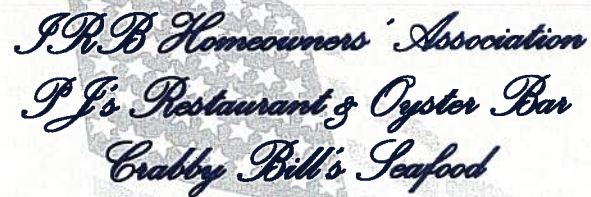 IRB Homeowners' Association
PJ's Restaurant & Oyster Bar
Crabby Bill's Seafood